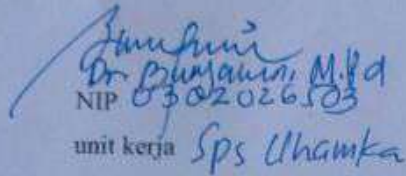 Dr. Bunyamin, M.Pd
NIP 0302026503
unit kerja Sps Uhamka